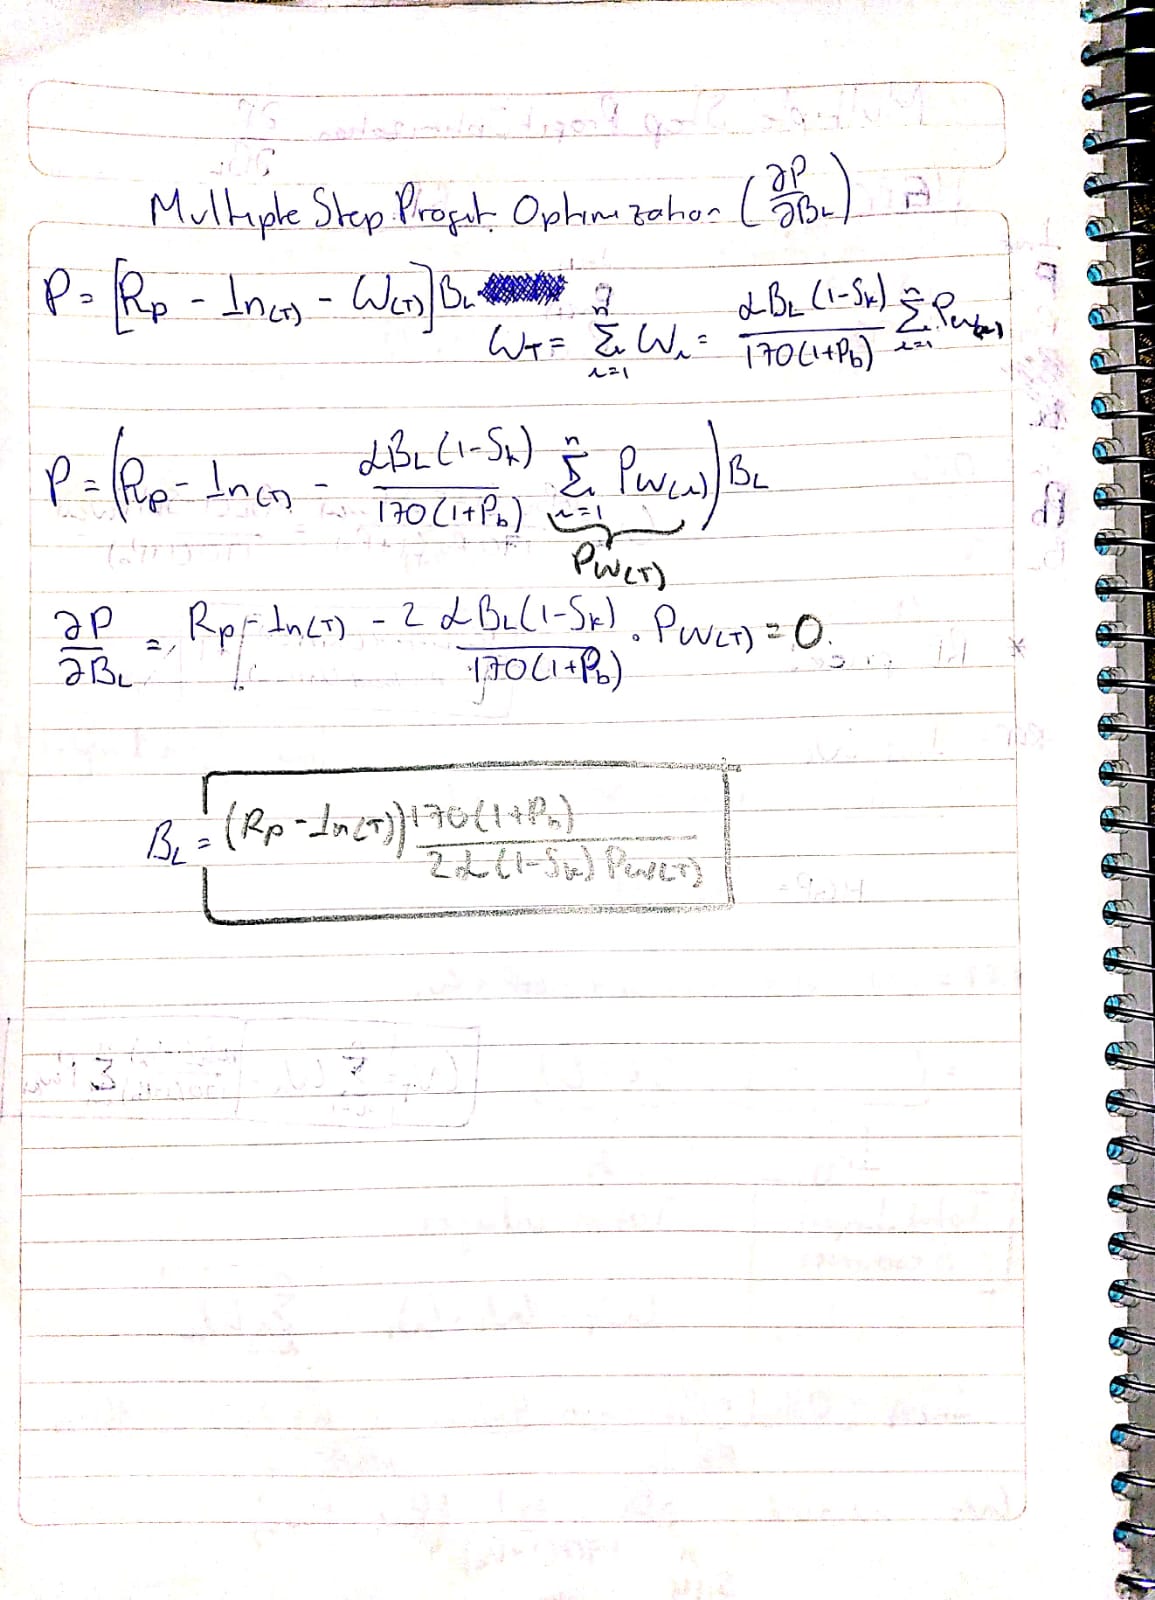 Multiple Step Profit Optimization (∂P/∂B_L)
P = [R_p - In_(T) - W_(T)] B_L
W_T = Σ_{i=1}^{n} W_i = αB_L(1-S_k)/170(1+P_b) Σ_{i=1}^{n} P_w(i)
P = (R_p - In_(T) - αB_L(1-S_k)/170(1+P_b) Σ_{i=1}^{n} P_w(i)) B_L
P_w(T)
∂P/∂B_L = R_p - In_(T) - 2 αB_L(1-S_k)/170(1+P_b) . P_w(T) = 0.
B_L = (R_p - In_(T)) 170(1+P_b)/2α(1-S_k) P_w(T)